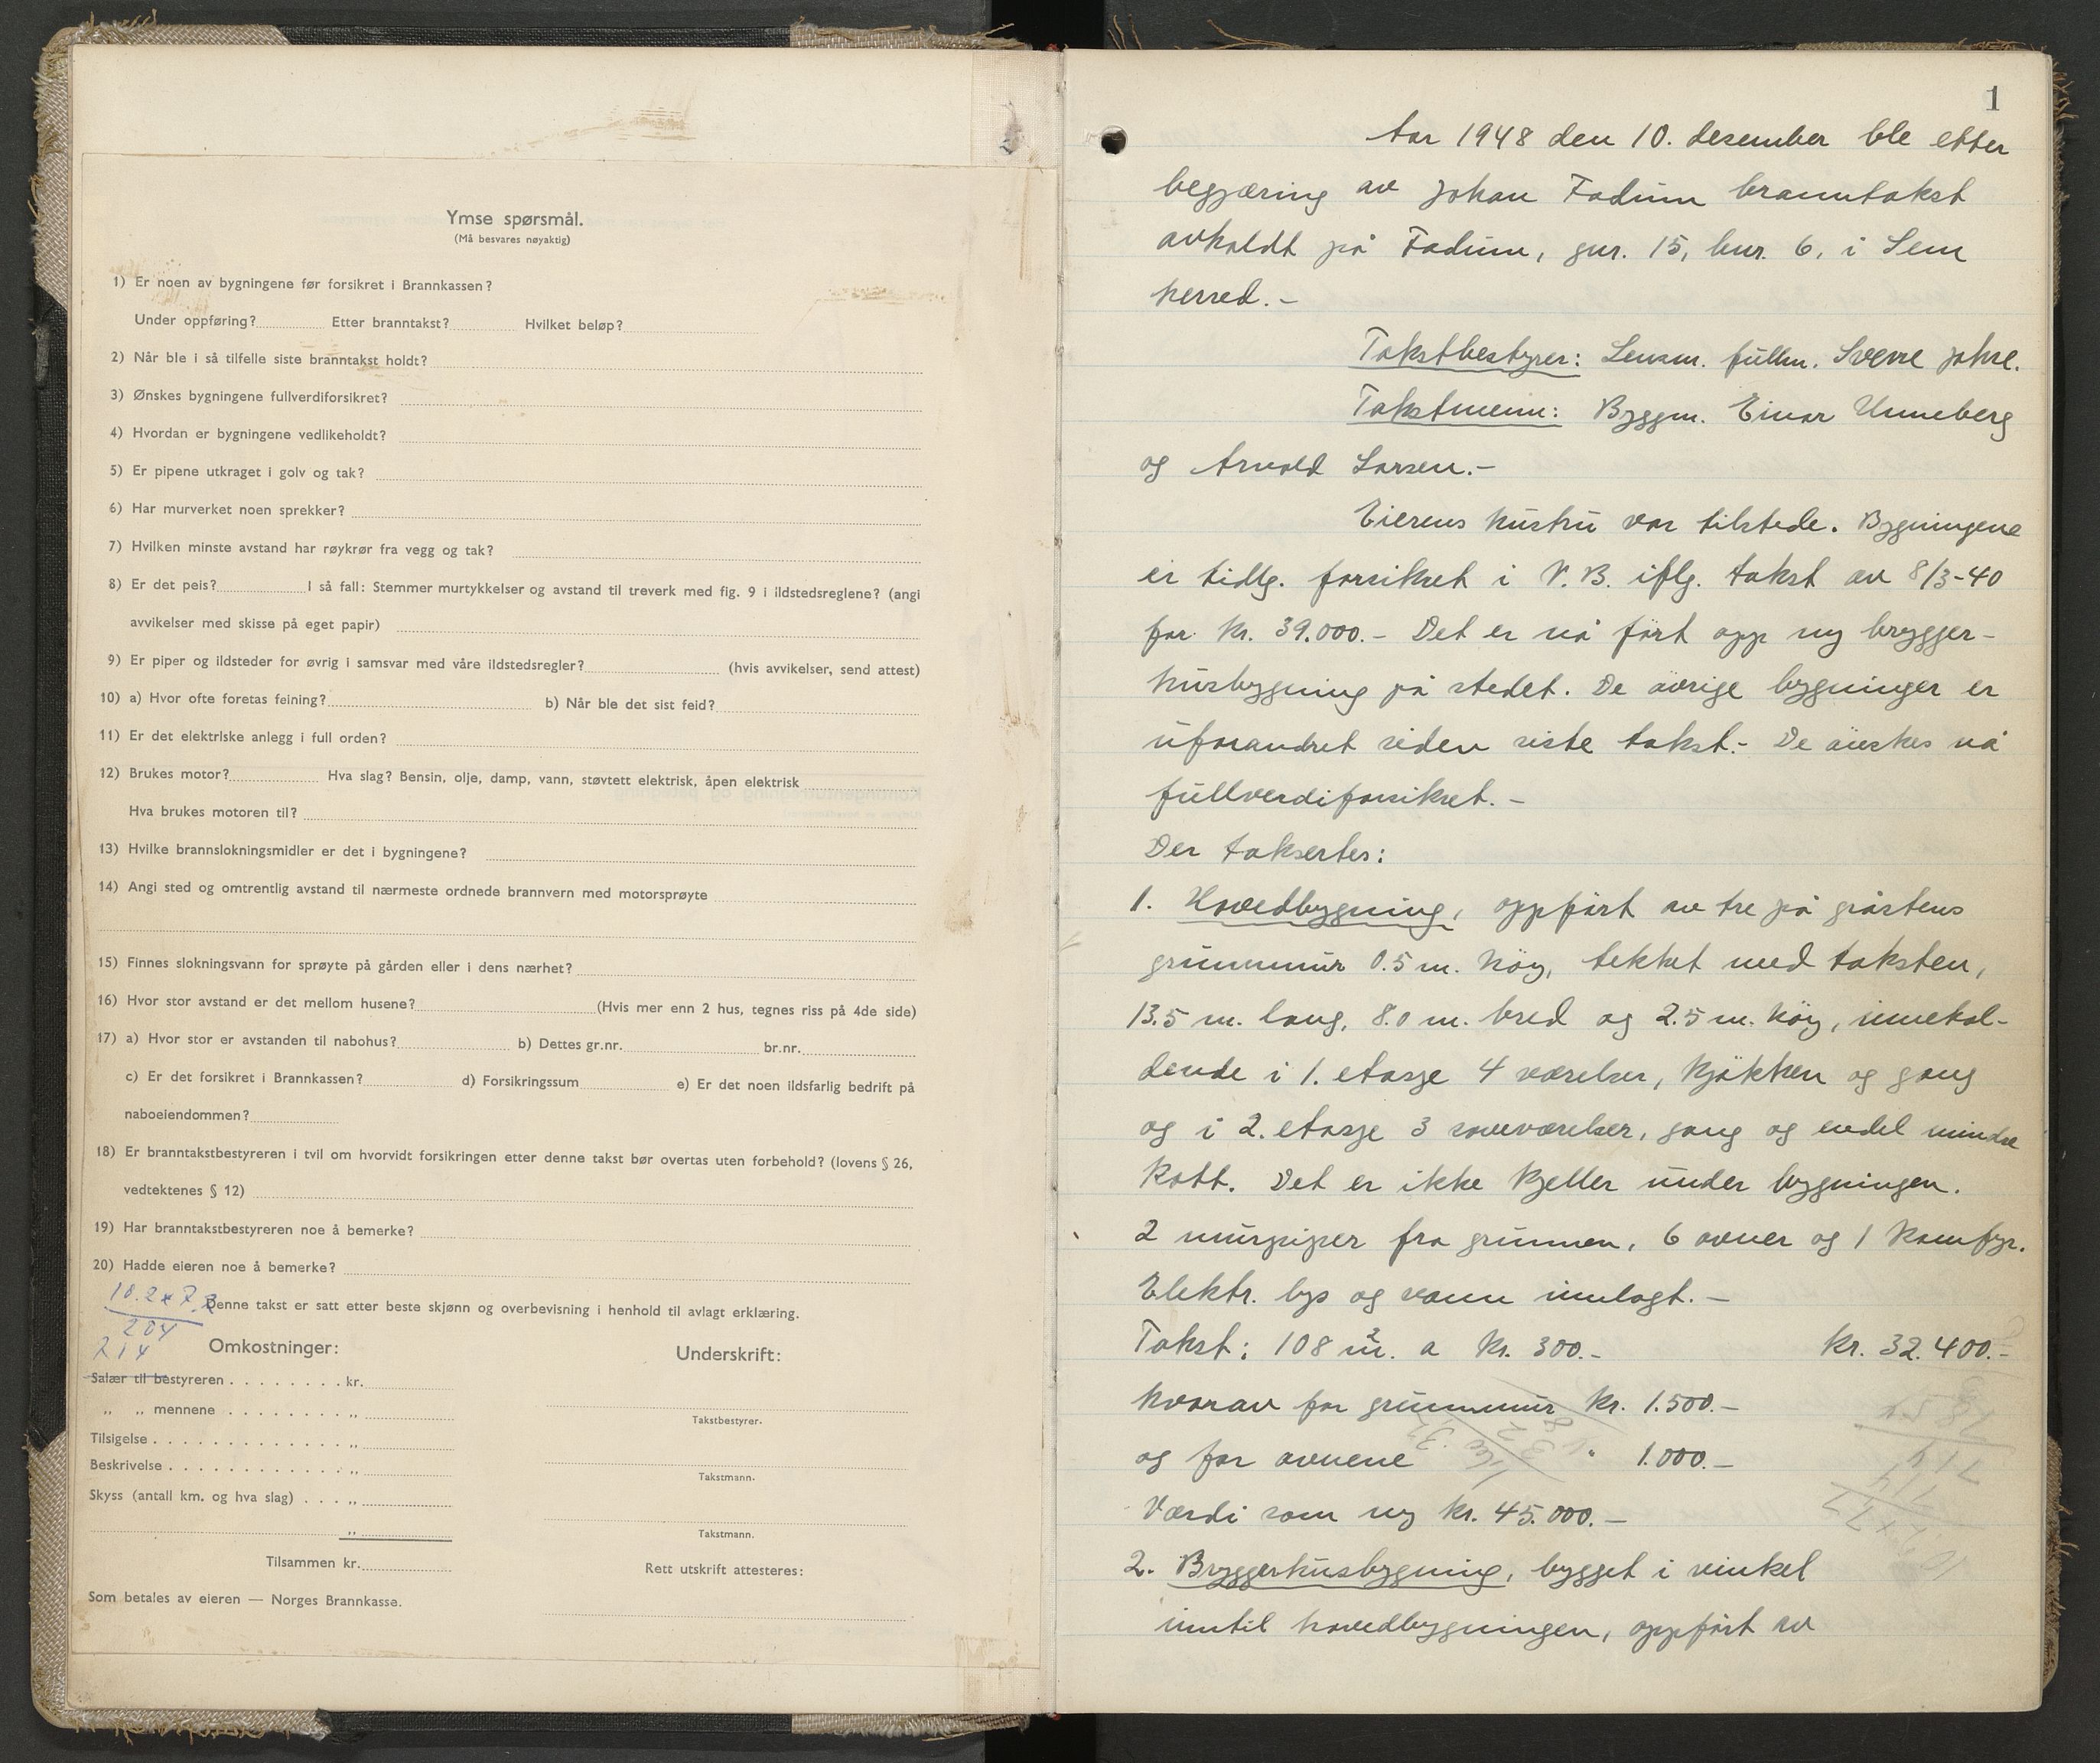 Ymse spørsmål.
(Må besvares nøyaktig)
1) Er noen av bygningene før forsikret i Brannkassen?
Under oppføring? Etter branntakst? Hvilket beløp?
2) Når ble i så tilfelle siste branntakst holdt?
3) Ønskes bygningene fullverdiforsikret?
4) Hvordan er bygningene vedlikeholdt?
5) Er pipene utkraget i golv og tak?
6) Har murverket noen sprekker?
7) Hvilken minste avstand har røykrør fra vegg og tak?
8) Er det peis? I så fall: Stemmer murtykkelser og avstand til treverk med fig. 9 i ildstedsreglene? (angi
avvikelser med skisse på eget papir)
9) Er piper og ildsteder for øvrig i samsvar med våre ildstedsregler? (hvis avvikelser, send attest)
10) a) Hvor ofte foretas feining? b) Når ble det sist feid?
11) Er det elektriske anlegg i full orden?
12) Brukes motor? Hva slag? Bensin, olje, damp, vann, støvtett elektrisk, åpen elektrisk
Hva brukes motoren til?
13) Hvilke brannslokningsmidler er det i bygningene?
14) Angi sted og omtrentlig avstand til nærmeste ordnede brannvern med motorsprøyte
15) Finnes slokningsvann for sprøyte på gården eller i dens nærhet?
16) Hvor stor avstand er det mellom husene? (Hvis mer enn 2 hus, tegnes riss på 4de side)
17) a) Hvor stor er avstanden til nabohus? b) Dettes gr.nr. br.nr.
c) Er det forsikret i Brannkassen? d) Forsikringssum e) Er det noen ildsfarlig bedrift på
naboeiendommen?
18) Er branntakstbestyreren i tvil om hvorvidt forsikringen etter denne takst bør overtas uten forbehold? (lovens § 26,
vedtektenes § 12)
19) Har branntakstbestyreren noe å bemerke?
20) Hadde eieren noe å bemerke?
Denne takst er satt etter beste skjønn og overbevisning i henhold til avlagt erklæring.
204
214
Omkostninger: Underskrift:
Salær til bestyreren . . . . . . . . kr.
„ „ mennene . . . . . . . . „
Takstbestyrer.
Tilsigelse . . . . . . . . . . . . . „
Beskrivelse . . . . . . . . . . . . „
Takstmann.
Skyss (antall km. og hva slag) . . . „
„
Takstmann.
Tilsammen kr.
Rett utskrift attesteres:
Som betales av eieren — Norges Brannkasse.
1
Aar 1948 den 10. desember ble etter
begjæring av Johan Fadum branntakst
avholdt på Fadum, gnr. 15, bnr. 6, i Sem
herred.-
Takstbestyrer: Lensm. fullm. Sverre Johre.
Takstmenn: Byggm. Einar Unneberg
og Arvold Larsen.-
Eierens hustru var tilstede. Bygningene
er tidlg. forsikret i N.B. iflg. takst av 8/3-40
for kr. 39.000.- Det er nå ført opp ny brygger-
husbygning på stedet. De øvrige bygninger er
uforandret siden siste takst.- De ønskes nå
fullverdiforsikret.-
Der taksertes:
1. Hovedbygning, oppført av tre på gråstens
grunnmur 0.5 m. høy, tekket med taksten,
13.5 m. lang, 8.0 m. bred og 2.5 m. høy, innehol-
dende i 1. etasje 4 værelser, kjøkken og gang
og i 2. etasje 3 soveværelser, gang og endel mindre
kott. Det er ikke kjeller under bygningen.
2 murpiper fra grunnen, 6 ovner og 1 komfyr.
Elektr. lys og vann innlagt.-
Takst: 108 m². a kr. 300.- kr. 32.400.-
hvorav for grunnmur kr. 1.500.-
og for ovnene " 1.000.-
Værdi som ny kr. 45.000.-
2. Bryggerhusbygning, bygget i vinkel
inntil hovedbygningen, oppført av